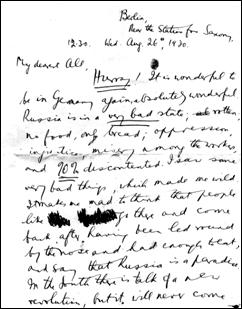 Berlin,
Near the Station for Saxony,
12.30. Wed. Aug 26th, 1930.
My dearest All,
Hurray! It is wonderful to
be in Germany again, absolutely wonderful
Russia is in a very bad state; rotten
no food, only bread; oppression,
injustice, misery among the workers,
and 90% discontented. I saw some
very bad things, which made me wild
It makes me mad to think that people
like go there and come
back after having been led round
by the nose and had enough to eat,
and say that Russia is a paradise
In the South there is talk of a new
revolution, but it will never come